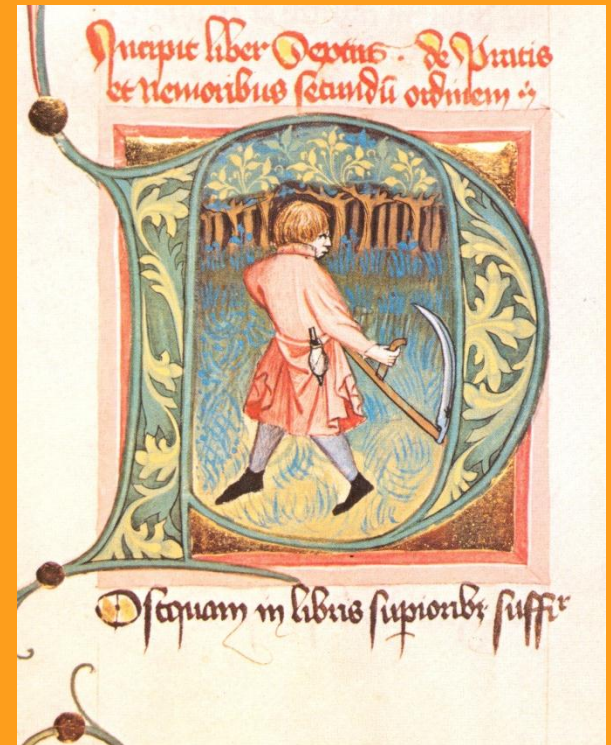 Incipit liber Septus . de Pratis
et nemoribus secundū ordinem
P
Ostquam in libris supioribꝫ